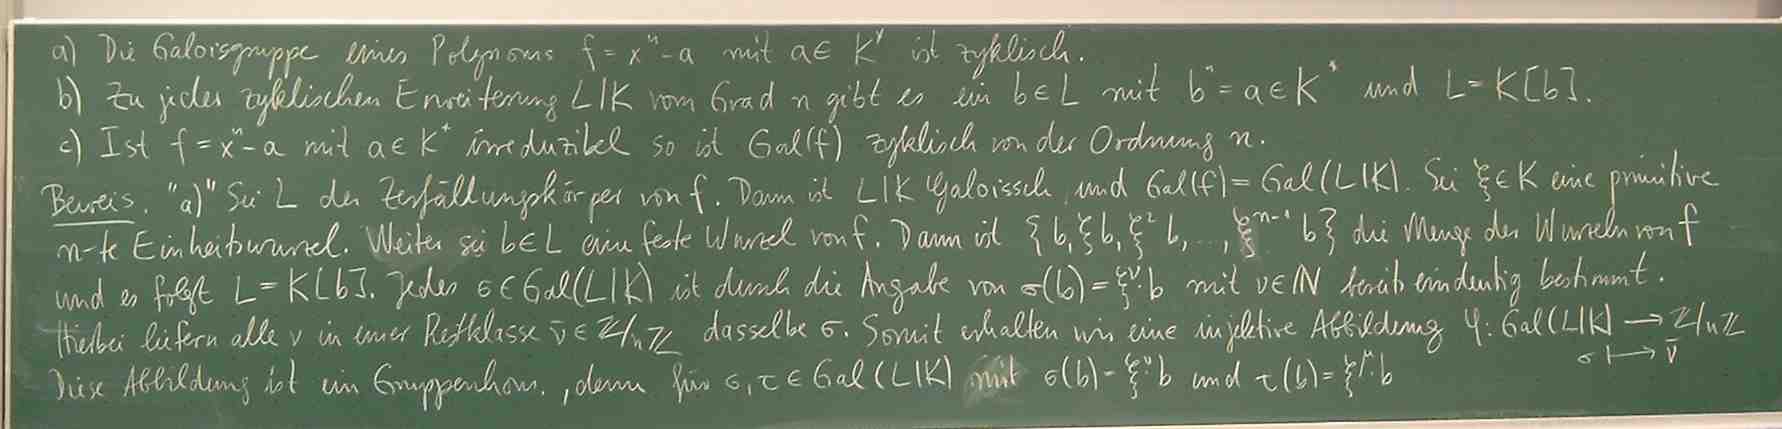 a) Die Galoisgruppe eines Polynoms f = xⁿ - a mit a ∈ K* ist zyklisch.
b) Zu jeder zyklischen Erweiterung L|K vom Grad n gibt es ein b ∈ L mit bⁿ = a ∈ K* und L = K[b].
c) Ist f = xⁿ - a mit a ∈ K* irreduzibel so ist Gal(f) zyklisch von der Ordnung n.
Beweis. "a)" Sei L der Zerfällungskörper von f. Dann ist L|K Galoissch, und Gal(f) = Gal(L|K). Sei ξ ∈ K eine primitive
n-te Einheitswurzel. Weiter sei b ∈ L eine feste Wurzel von f. Dann ist {b, ξb, ξ²b, ..., ξⁿ⁻¹b} die Menge der Wurzeln von f
und es folgt L = K[b]. Jedes σ ∈ Gal(L|K) ist durch die Angabe von σ(b) = ξ^ν·b mit ν ∈ ℕ bereits eindeutig bestimmt.
Hierbei liefern alle ν in einer Restklasse ν̄ ∈ ℤ/nℤ dasselbe σ. Somit erhalten wir eine injektive Abbildung φ: Gal(L|K) → ℤ/nℤ
σ ↦ ν̄
Diese Abbildung ist ein Gruppenhom., denn für σ, τ ∈ Gal(L|K) mit σ(b) = ξ^ν·b und τ(b) = ξ^μ·b